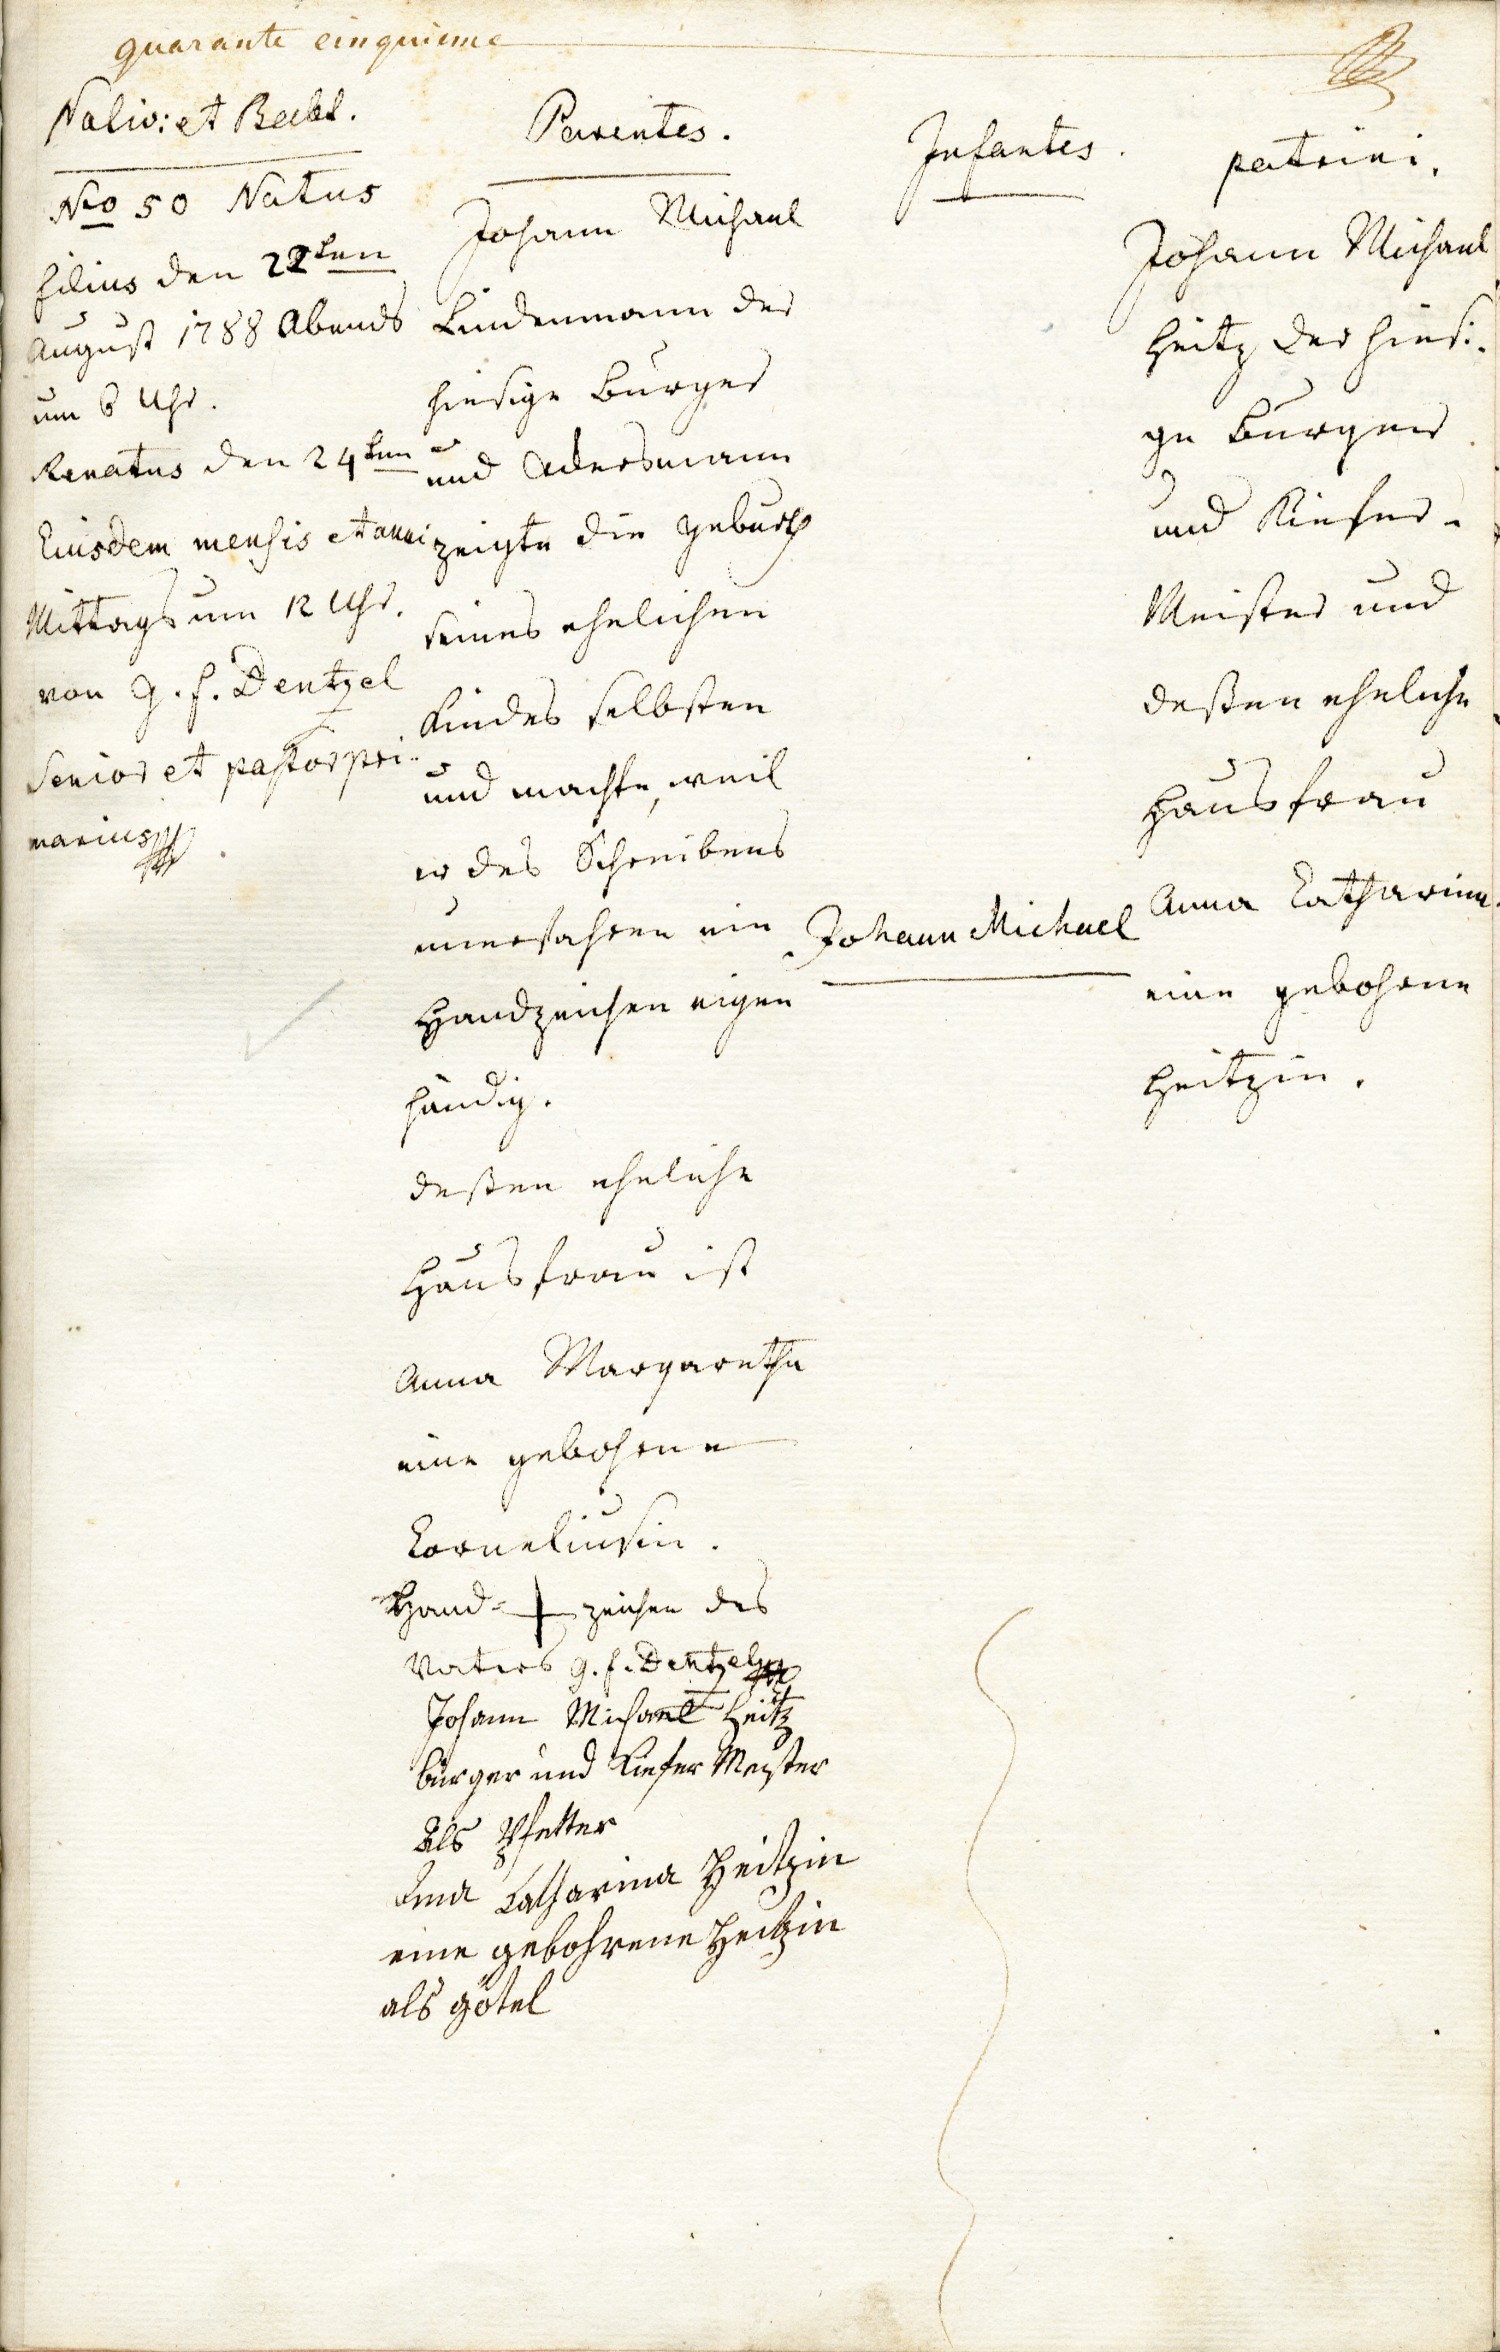 quarante cinquieme
Nativ: et Babt.
Nro 50 Natus
filius den 22ten
August 1788 Abends
um 6 Uhr.
Renatus den 24ten
Eiusdem mensis et anni
Mittags um 12 Uhr.
von G. F. Dentzel
Senior et pastor pri-
marius
Parentes.
Johann Michael
Lindenmann der
hiesige Burger
und Ackersmann
zeigte die Geburth
seines ehelichen
Kindes selbsten
und machte, weil
er des Schreibens
unerfahren ein
Handzeichen eigen
händig.
deßen eheliche
Hausfrau ist
Anna Margaretha
eine gebohrne
Corneliusin.
Hand- + zeichen des
Vaters G. F. Dentzel
Johann Michael Heitz
burger und Kiefer Meister
Als Pfetter
Anna Catharina Heitzin
eine gebohrene Heitzin
als götel
Infantes.
Johann Michael
patrini.
Johann Michael
Heitz der hiesi-
ge Burger
und Kiefer-
Meister und
deßen eheliche
Hausfrau
Anna Catharina
eine gebohrne
Heitzin.